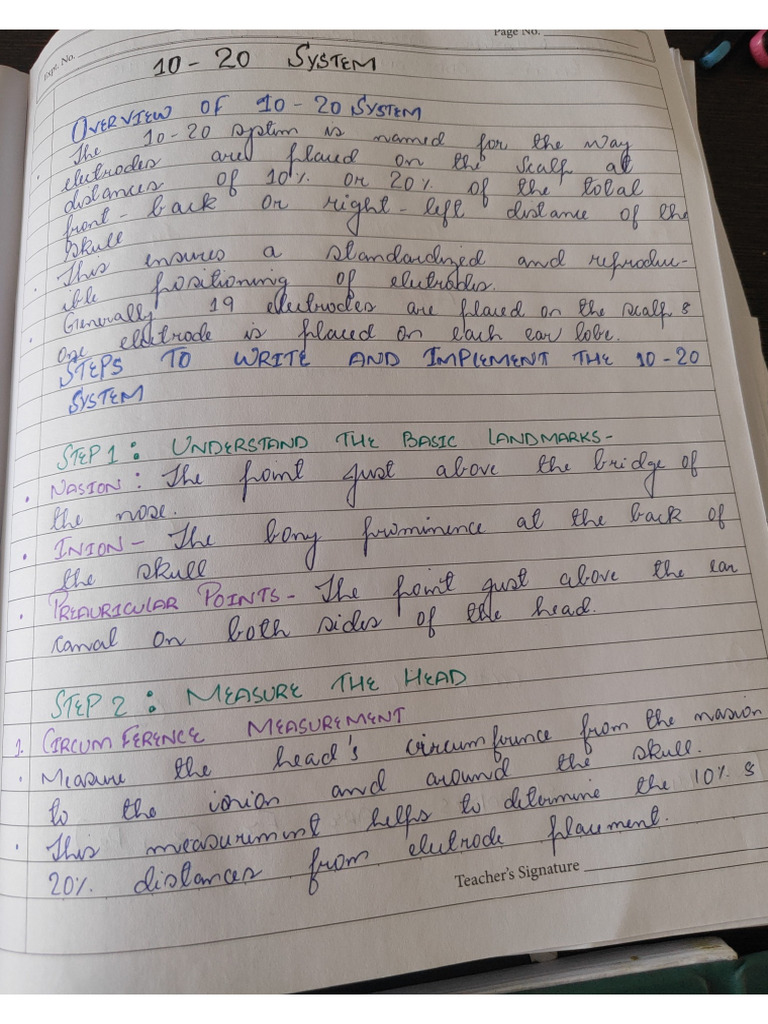 Page No.
Expt. No.
10 - 20 SYSTEM
OVERVIEW OF 10 - 20 SYSTEM
The 10-20 system is named for the way
electrodes are placed on the scalp at
distances of 10% or 20% of the total
front - back or right - left distance of the
skull
This ensures a standardized and reproduc-
ible positioning of electrodes.
Generally 19 electrodes are placed on the scalp &
one electrode is placed on each ear lobe.
STEPS TO WRITE AND IMPLEMENT THE 10-20
SYSTEM
STEP 1 : UNDERSTAND THE BASIC LANDMARKS-
• NASION : The point just above the bridge of
the nose.
• INION - The bony prominence at the back of
the skull
• PREAURICULAR POINTS - The point just above the ear
canal on both sides of the head.
STEP 2 : MEASURE THE HEAD
1. CIRCUMFERENCE MEASUREMENT
• Measure the head's circumfrence from the nasion
to the inion and around the skull.
• This measurement helps to determine the 10% &
20% distances from electrode placement.
Teacher's Signature